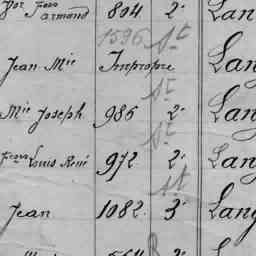 Armand 804 2e Lan
1596 St
Jean Mie Impropre Lan
St
Mie Joseph 986 2e Lan
St
Fçois Louis René 972 2e Lang
St
Jean 1082 3e Lang